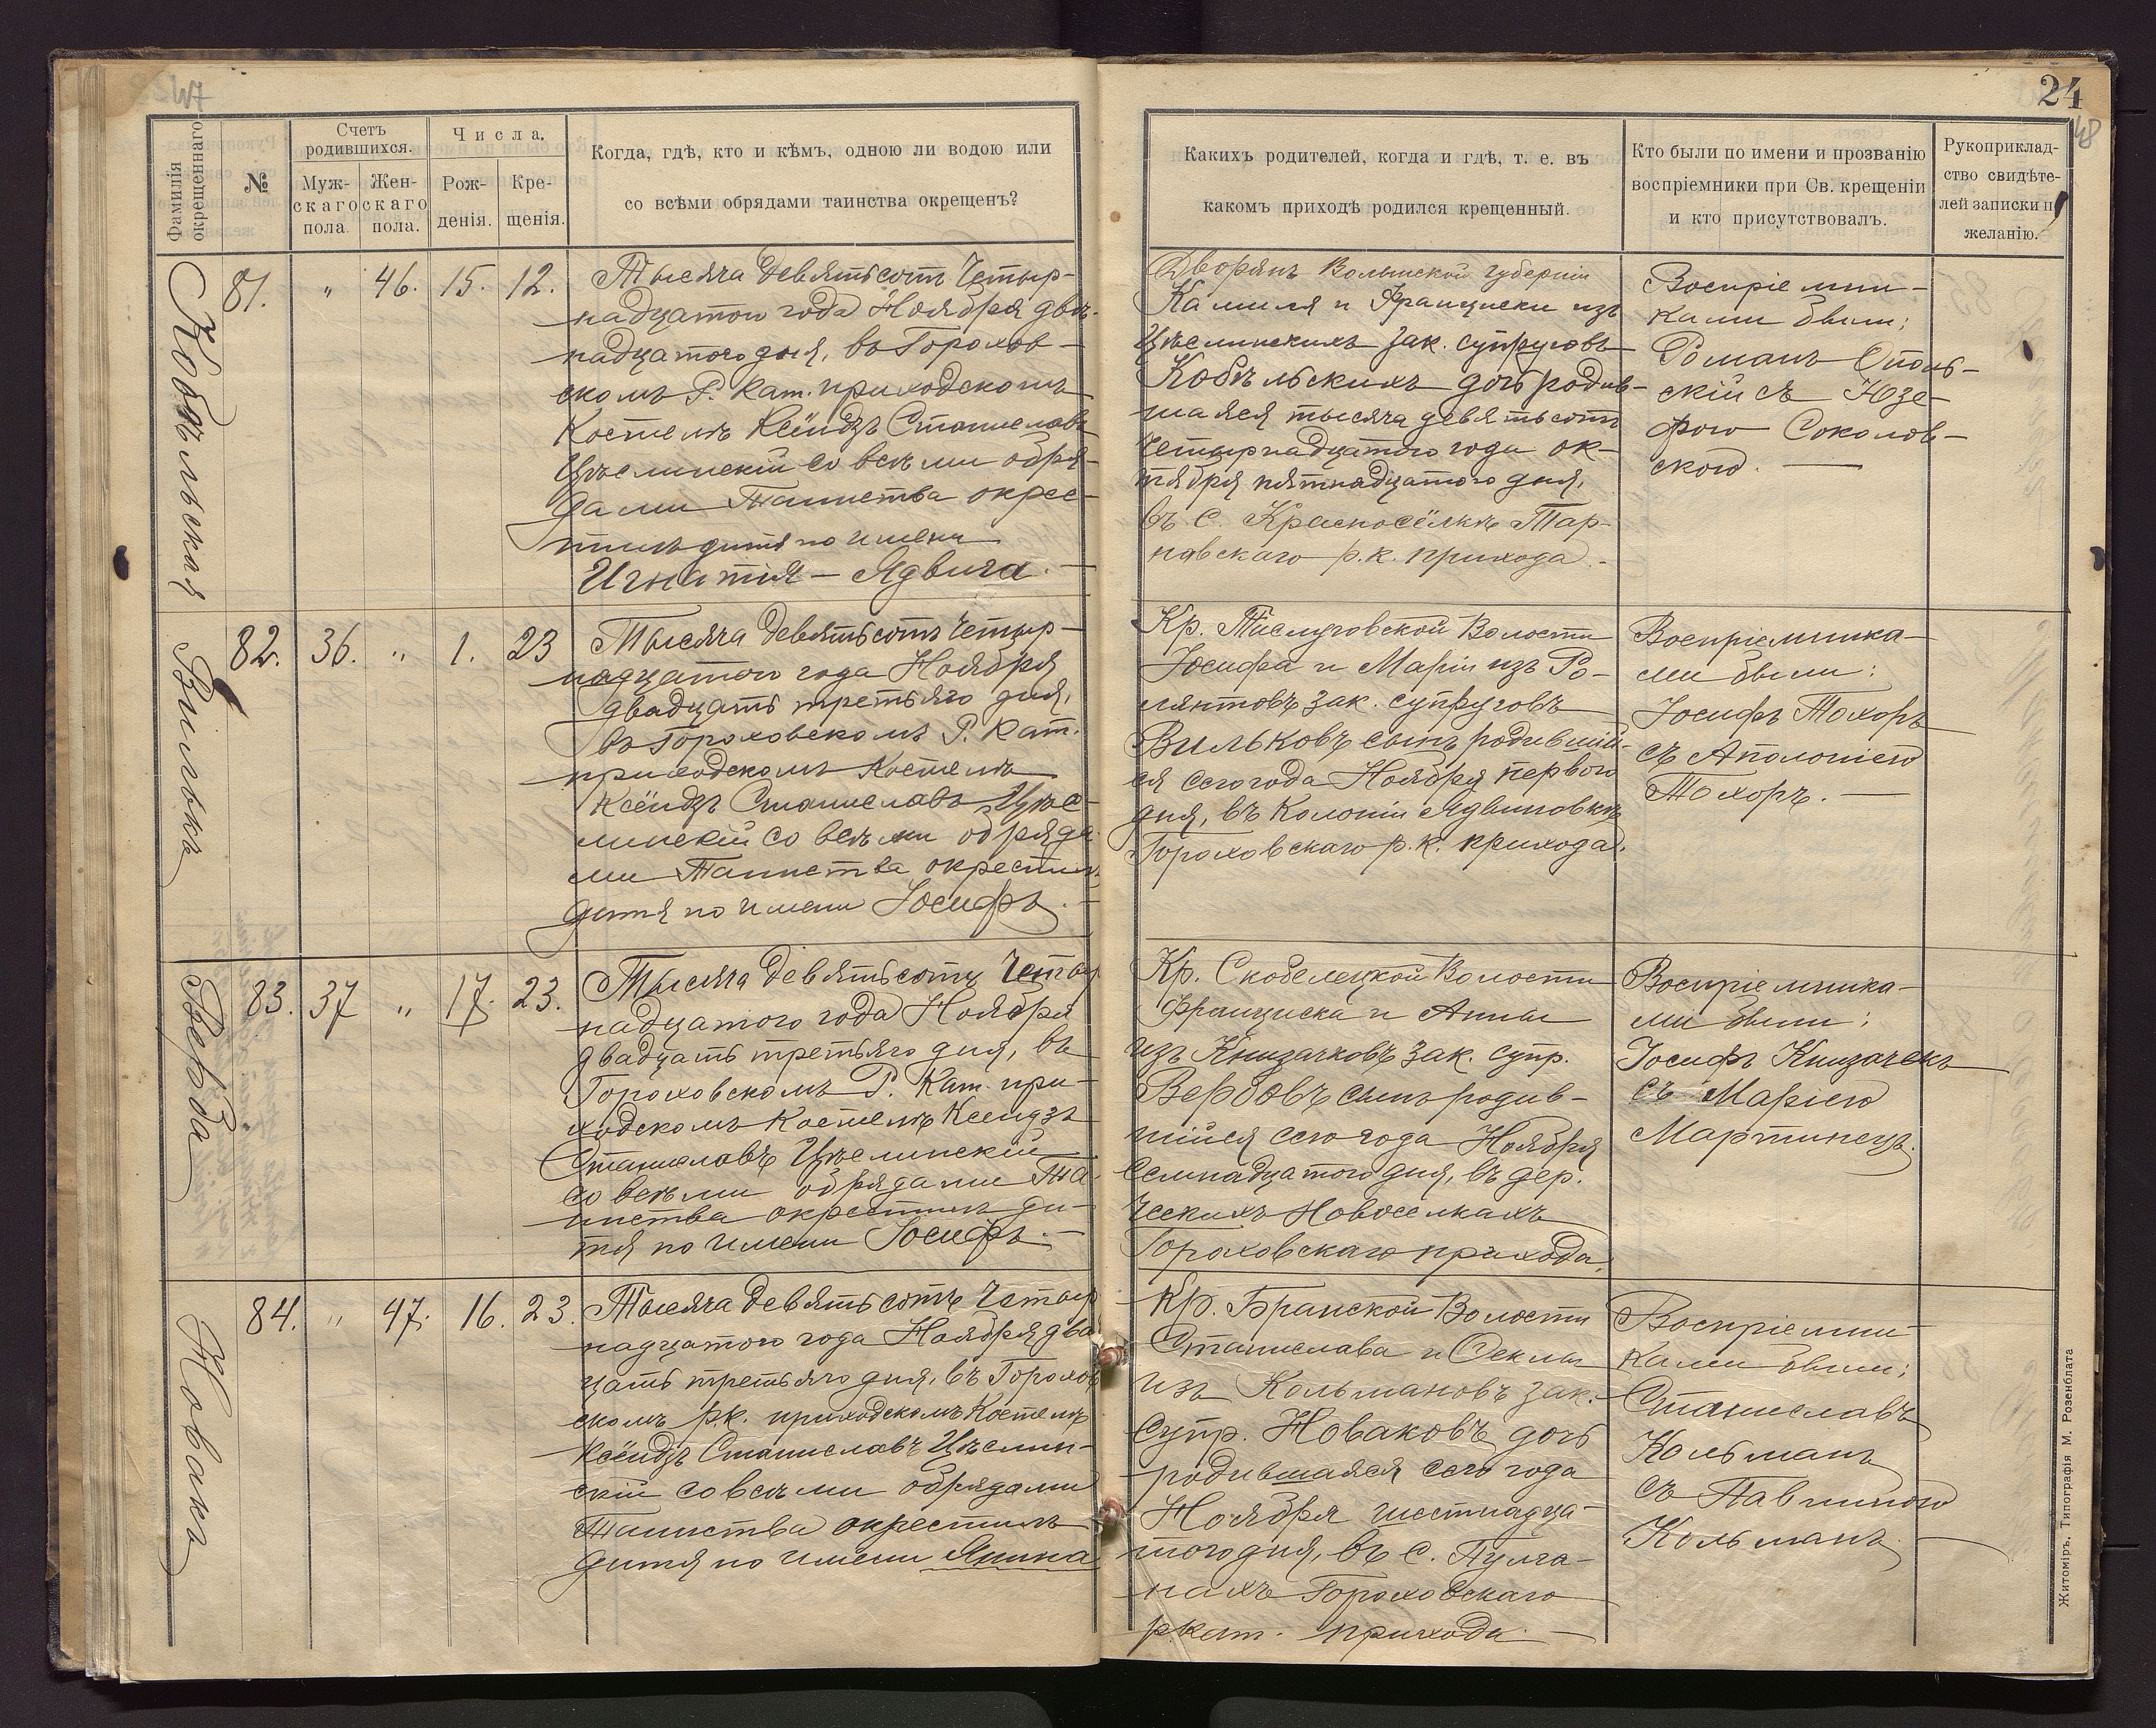 47
24
48
Фамилія окрещеннаго
№
Счетъ родившихся.
Муж-скаго пола.
Жен-скаго пола.
Числа.
Рож-денія.
Кре-щенія.
Когда, гдѣ, кто и кѣмъ, одною ли водою или
со всѣми обрядами таинства окрещенъ?
Какихъ родителей, когда и гдѣ, т. е. въ
какомъ приходѣ родился крещенный.
Кто были по имени и прозванію
воспріемники при Св. крещеніи
и кто присутствовалъ.
Рукоприклад-
ство свидѣте-
лей записки п
желанію.
Кобѣльская
81. " 46. 15. 12.
Тысяча девятьсотъ Четыр-
надцатого года Ноября двѣ-
надцатого дня, въ Горохов-
скомъ Р. Кат. приходскомъ
Костелѣ Ксёндзъ Станиславъ
Цѣслинскій со всѣми обря-
дами Таинства окрес-
тилъ дитя по имени
Игнатія - Ядвига. -
Дворянъ Волынской губерніи
Камиля и Франциски изъ
Цѣслинскихъ зак. супруговъ
Кобѣльскихъ дочь родив-
шаяся тысяча девятьсотъ
Четырнадцатого года ок-
тября пятнадцатого дня,
въ С. Красносёлкѣ Тар-
навскаго р.к. прихода. -
Воспріемни-
ками были:
Романъ Ополь-
скій съ Юзе-
фою Соколов-
скою. -
Вилькъ
82. 36. " 1. 23
Тысяча девятьсотъ Четыр-
надцатого года Ноября
двадцать третьяго дня,
въ Гороховскомъ Р. Кат.
приходскомъ Костелѣ
Ксёндзъ Станиславъ Цѣс-
линскій со всѣми обряда-
ми Таинства окрестилъ
дитя по имени Іосифъ. -
Кр. Волости
Іосифа и Маріи изъ Ро-
лянтовъ зак. супруговъ
Вильковъ сынъ родившій-
ся сего года Ноября первого
дня, въ Колоніи Ядвиновкѣ
Гороховскаго р.к. прихода.
Воспріемника-
ми были:
Іосифъ Тохоръ
съ Аполоніею
Тохоръ. -
Верба
83. 37 " 17. 23.
Тысяча девятьсотъ Четыр
надцатого года Ноября
двадцать третьяго дня, въ
Гороховскомъ Р. Кат. при-
ходскомъ Костелѣ Ксендзъ
Станиславъ Цѣслинскій
со всѣми обрядами Та-
инства окрестилъ ди-
тя по имени Іосифъ. -
Кр. Скобелецкой Волости
Франциска и Анны
изъ Книзачковъ зак. супр.
Вербовъ сынъ родив-
шійся сего года Ноября
Семнадцатого дня, въ дер.
Чешскихъ Новоселкахъ
Гороховскаго прихода.
Воспріемника-
ми были:
Іосифъ Книзачекъ
съ Маріею
Мартинецъ.
Новакъ
84. " 47. 16. 23.
Тысяча девятьсотъ Четыр
надцатого года Ноября два
цать третьяго дня, въ Горохов
скомъ р.к. приходскомъ Костелѣ
Ксёндзъ Станиславъ Цѣслин-
скій со всѣми обрядами
Таинства окрестилъ
дитя по имени Янина
Кр. Бранской Волости
Станислава и Ѳеклы
изъ Кольмановъ зак.
Супр. Новаковъ дочь
родившаяся сего года
Ноября шестнадца-
того дня, въ с. Пулга-
нахъ Гороховскаго
р.кат. прихода. -
Воспріемни-
ками были:
Станиславъ
Кольманъ
съ Павлиною
Кольманъ. -
Житоміръ, Типографія М. Розенблата